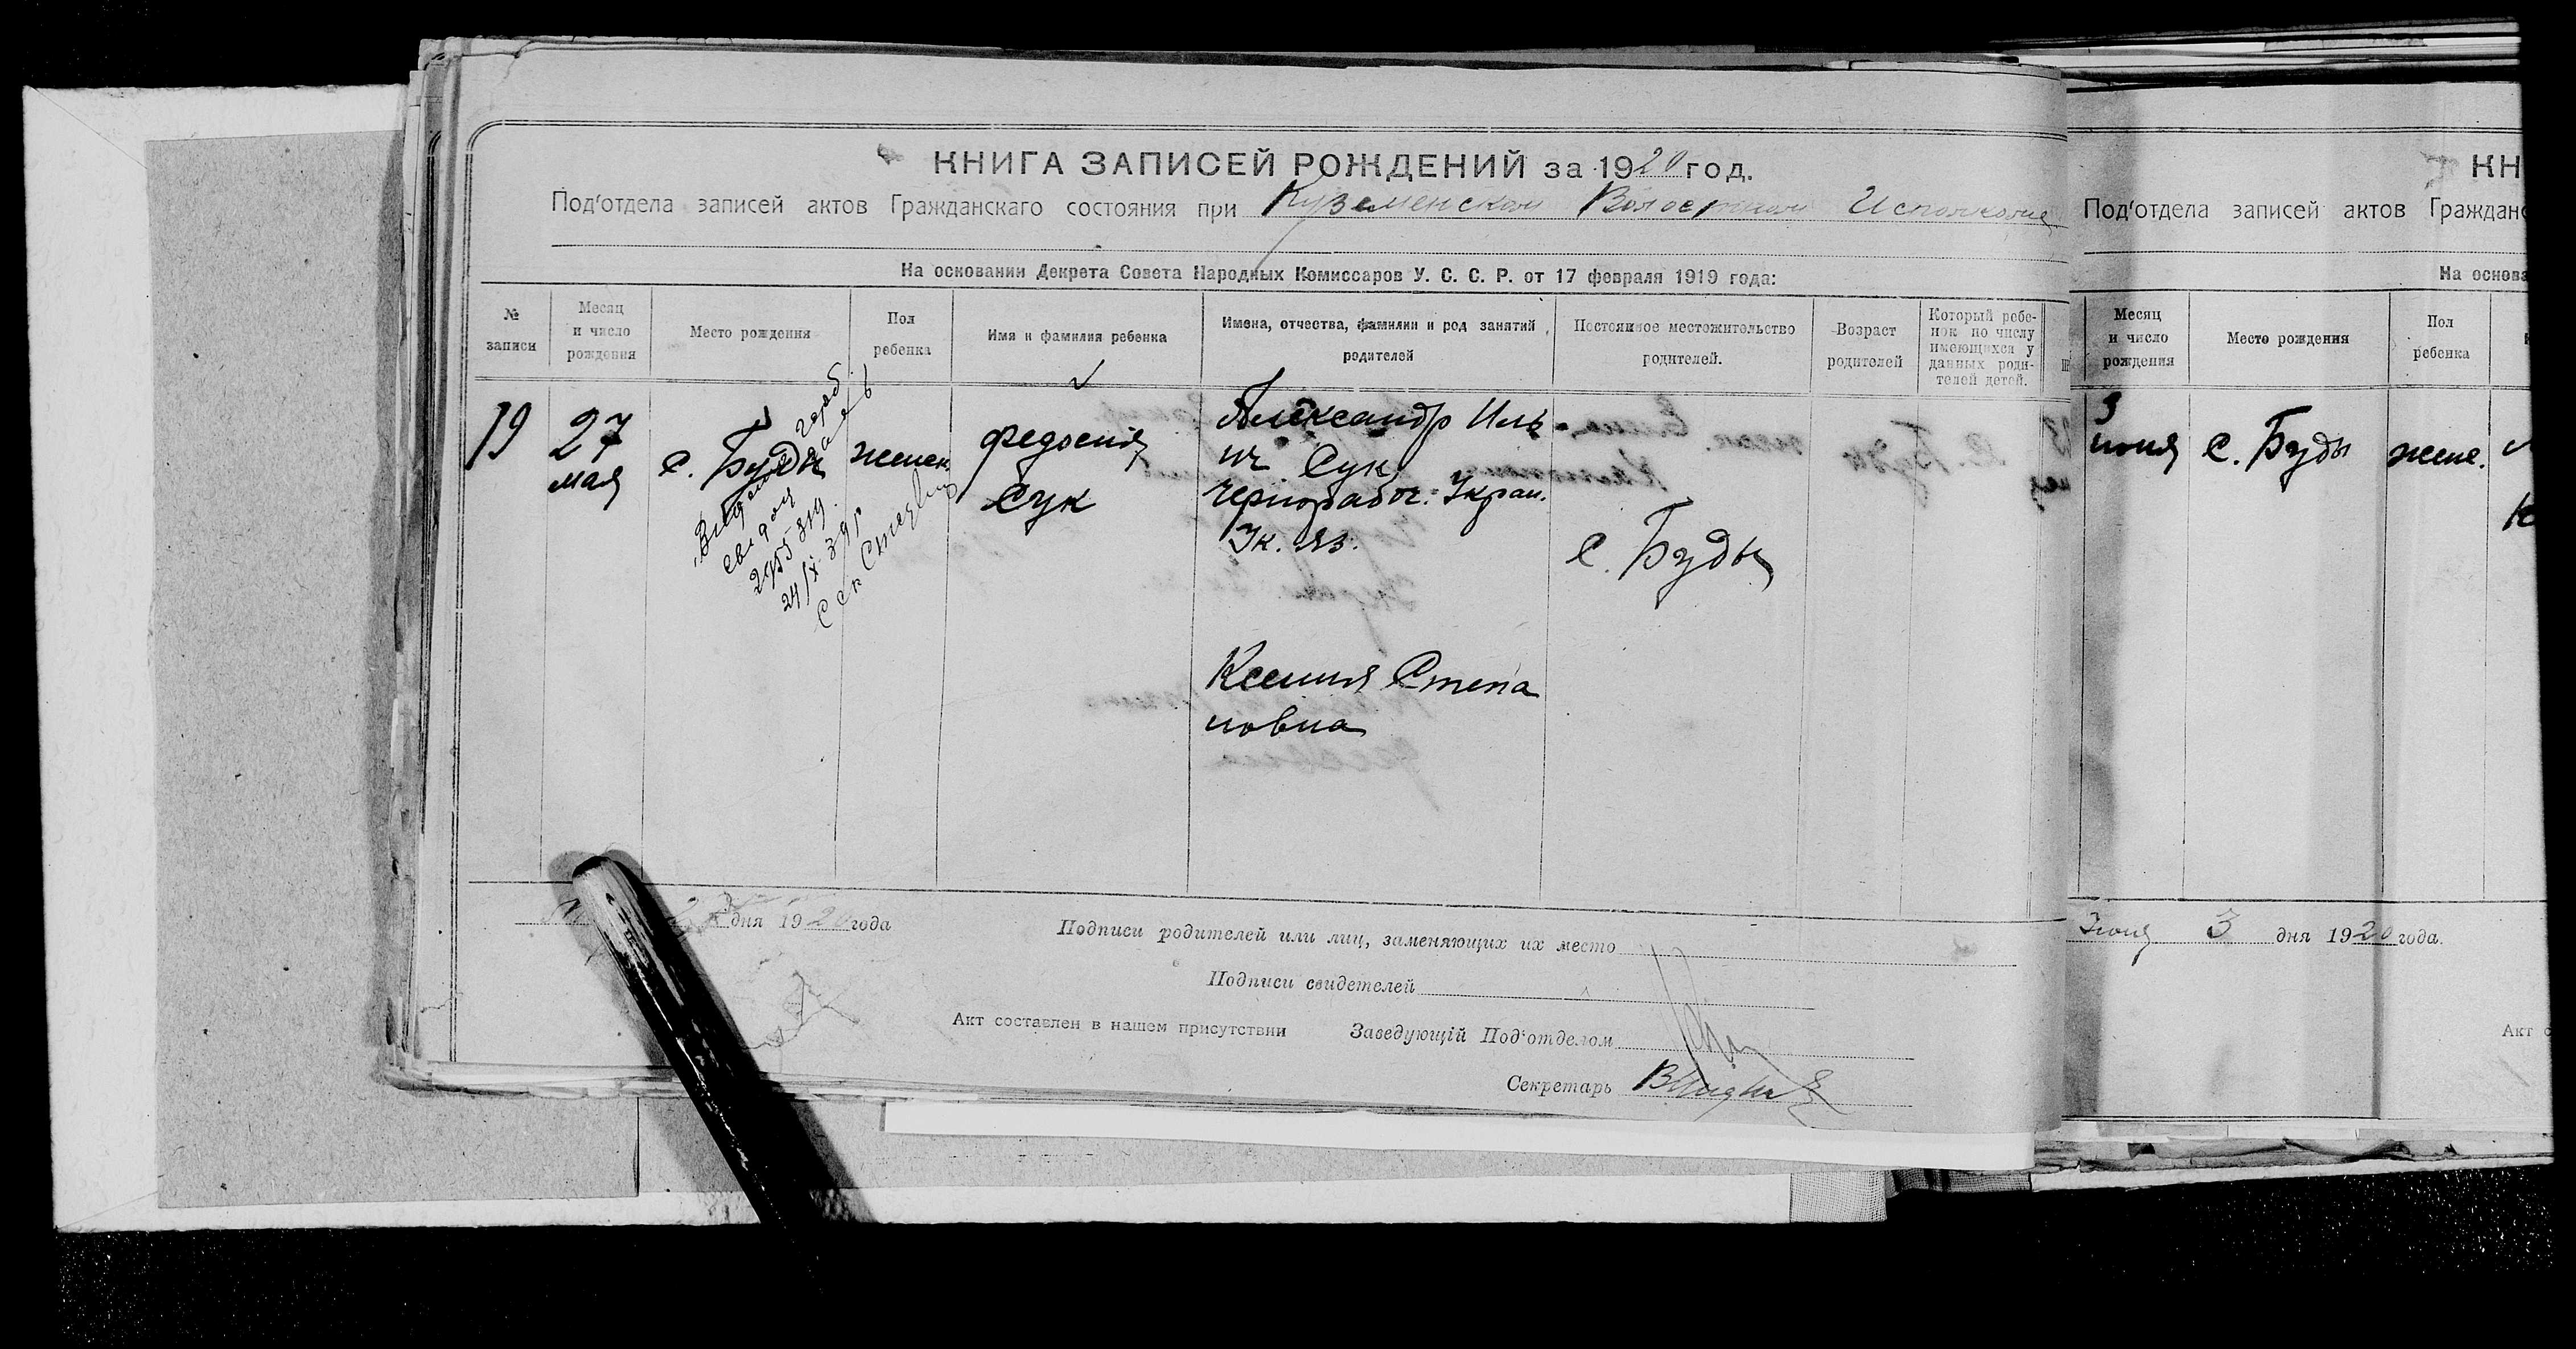 КНИГА ЗАПИСЕЙ РОЖДЕНИЙ за 1920 год.
Под'отдела записей актов Гражданскаго состояния при Куземенском Волостном Исполкоме
На основании Декрета Совета Народных Комиссаров У. С. С. Р. от 17 февраля 1919 года:
№ записи
Месяц и число рождения
Место рождения
Пол ребенка
Имя и фамилия ребенка
Имена, отчества, фамилии и род занятий родителей
Постоянное местожительство родителей.
Возраст родителей
Который ребе-
нок по числу
имеющихся у
данных роди-
телей детей.
19
27
мая
с. Буды
женск
Федосия
Сук
Александр Иль
ич Сук
чернорабоч. Укран.
Ук. яз.
Ксения Степа
новна
с. Буды
24/X 39 р
дня 1920 года
Подписи родителей или лиц, заменяющих их место
Подписи свидетелей
Акт составлен в нашем присутствии Заведующій Под'отделом
Секретарь
КН
Под'отдела записей актов Гражданс
На основа
Месяц и число рождения
Место рождения
Пол ребенка
3
июня
с. Буды
женс.
Июня 3 дня 1920 года.
Акт с